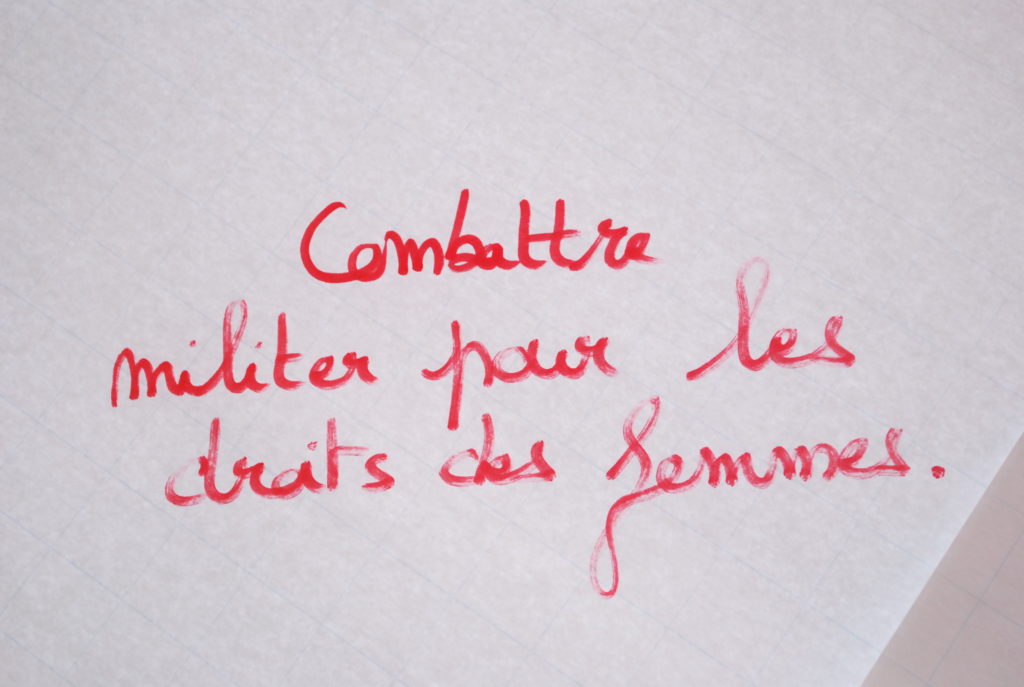 Combattre
militer pour les
droits des femmes.